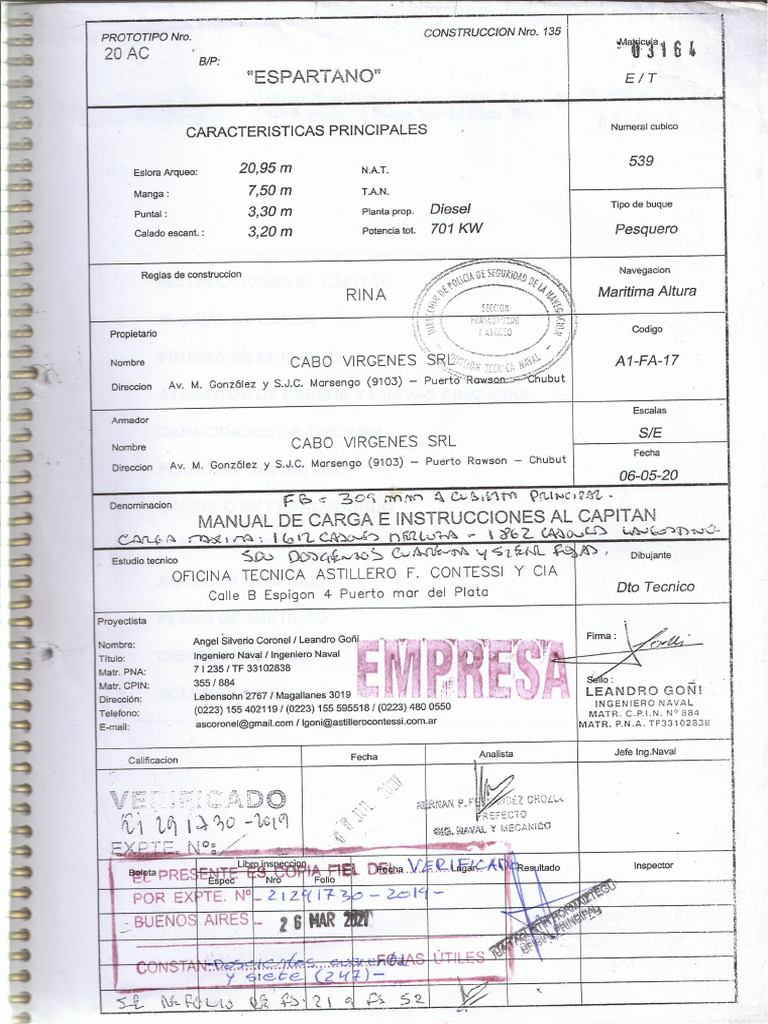 PROTOTIPO Nro.
20 AC
B/P:
"ESPARTANO"
CONSTRUCCION Nro. 135
Matricula
03164
E / T
CARACTERISTICAS PRINCIPALES
Eslora Arqueo: 20,95 m N.A.T.
Manga : 7,50 m T.A.N.
Puntal : 3,30 m Planta prop. Diesel
Calado escant. : 3,20 m Potencia tot. 701 KW
Numeral cubico
539
Tipo de buque
Pesquero
Reglas de construccion
RINA
Navegacion
Maritima Altura
DIRECCION DE POLICIA DE SEGURIDAD DE LA NAVEGACION
SECCION
FRANCOBORDO
Y ARQUEO
DIVISION TECNICA NAVAL
Propietario
Nombre CABO VIRGENES SRL
Direccion Av. M. González y S.J.C. Marsengo (9103) – Puerto Rawson – Chubut
Codigo
A1-FA-17
Armador
Nombre CABO VIRGENES SRL
Direccion Av. M. González y S.J.C. Marsengo (9103) – Puerto Rawson – Chubut
Escalas
S/E
Fecha
06-05-20
FB = 309 mm A CUBIERTA PRINCIPAL.
Denominacion
MANUAL DE CARGA E INSTRUCCIONES AL CAPITAN
CARGA MAXIMA: 1612 CAJONES MERLUZA - 1862 CAJONES LANGOSTINO
SON DOSCIENTOS CUARENTA Y SIETE FOJAS.
Estudio tecnico
OFICINA TECNICA ASTILLERO F. CONTESSI Y CIA
Calle B Espigon 4 Puerto mar del Plata
Dibujante
Dto Tecnico
Proyectista
Nombre: Angel Silverio Coronel / Leandro Goñi
Título: Ingeniero Naval / Ingeniero Naval
Matr. PNA: 7 I 235 / TF 33102838
Matr. CPIN: 355 / 884
Dirección: Lebensohn 2767 / Magallanes 3019
Telefono: (0223) 155 402119 / (0223) 155 595518 / (0223) 480 0550
E-mail: ascoronel@gmail.com / lgoni@astillerocontessi.com.ar
EMPRESA
Firma :
Sello :
LEANDRO GOÑI
INGENIERO NAVAL
MATR. C.P.I.N. Nº 884
MATR. P.N.A. TF33102838
Calificacion
Fecha
Analista
Jefe Ing.Naval
VERIFICADO
21291730-2019
EXPTE. Nº:
PREFECTO
ING. NAVAL Y MECANICO
Boleta
Libro inspeccion
Espec Nro Folio
Fecha
Lugar
Resultado
Inspector
EL PRESENTE ES COPIA FIEL DEL VERIFICADO
POR EXPTE. Nº 21291730-2019-
BUENOS AIRES - 26 MAR 2021
CONSTAN: Doscientos cuarenta FOJAS ÚTILES
y siete (247)-
OFICIAL PRINCIPAL
SE REFOLIO DE FS. 21 a FS 52